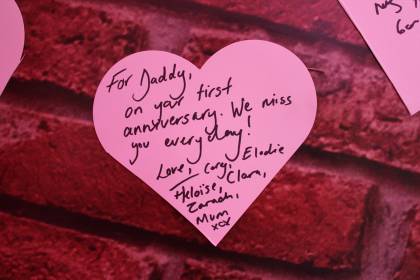 For Daddy,
on your first
anniversary. We miss
you everyday!
Love, Cory, Elodie
Heloise, Clara,
Zarach,
Mum
xox